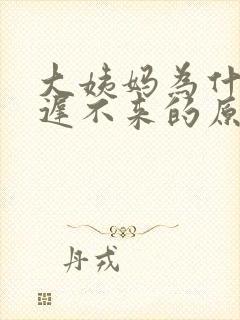 大姨妈为什
遲不来的原
丹戎